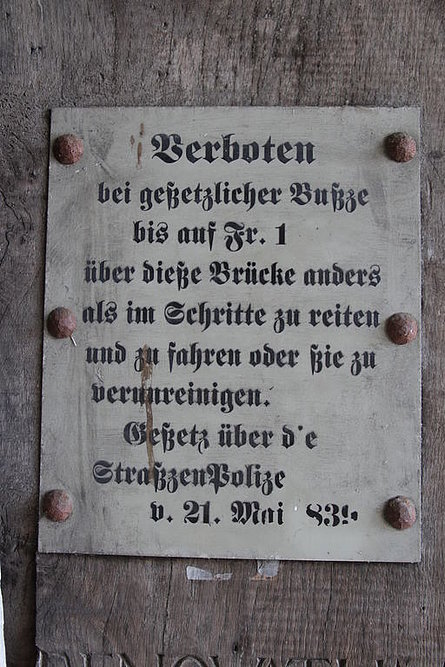 Verboten
bei geßetzlicher Bußze
bis auf Fr. 1
über dieße Brücke anders
als im Schritte zu reiten
und zu fahren oder ßie zu
verunreinigen.
Geßetz über d'e
StraßzenPolize
v. 21. Mai 839